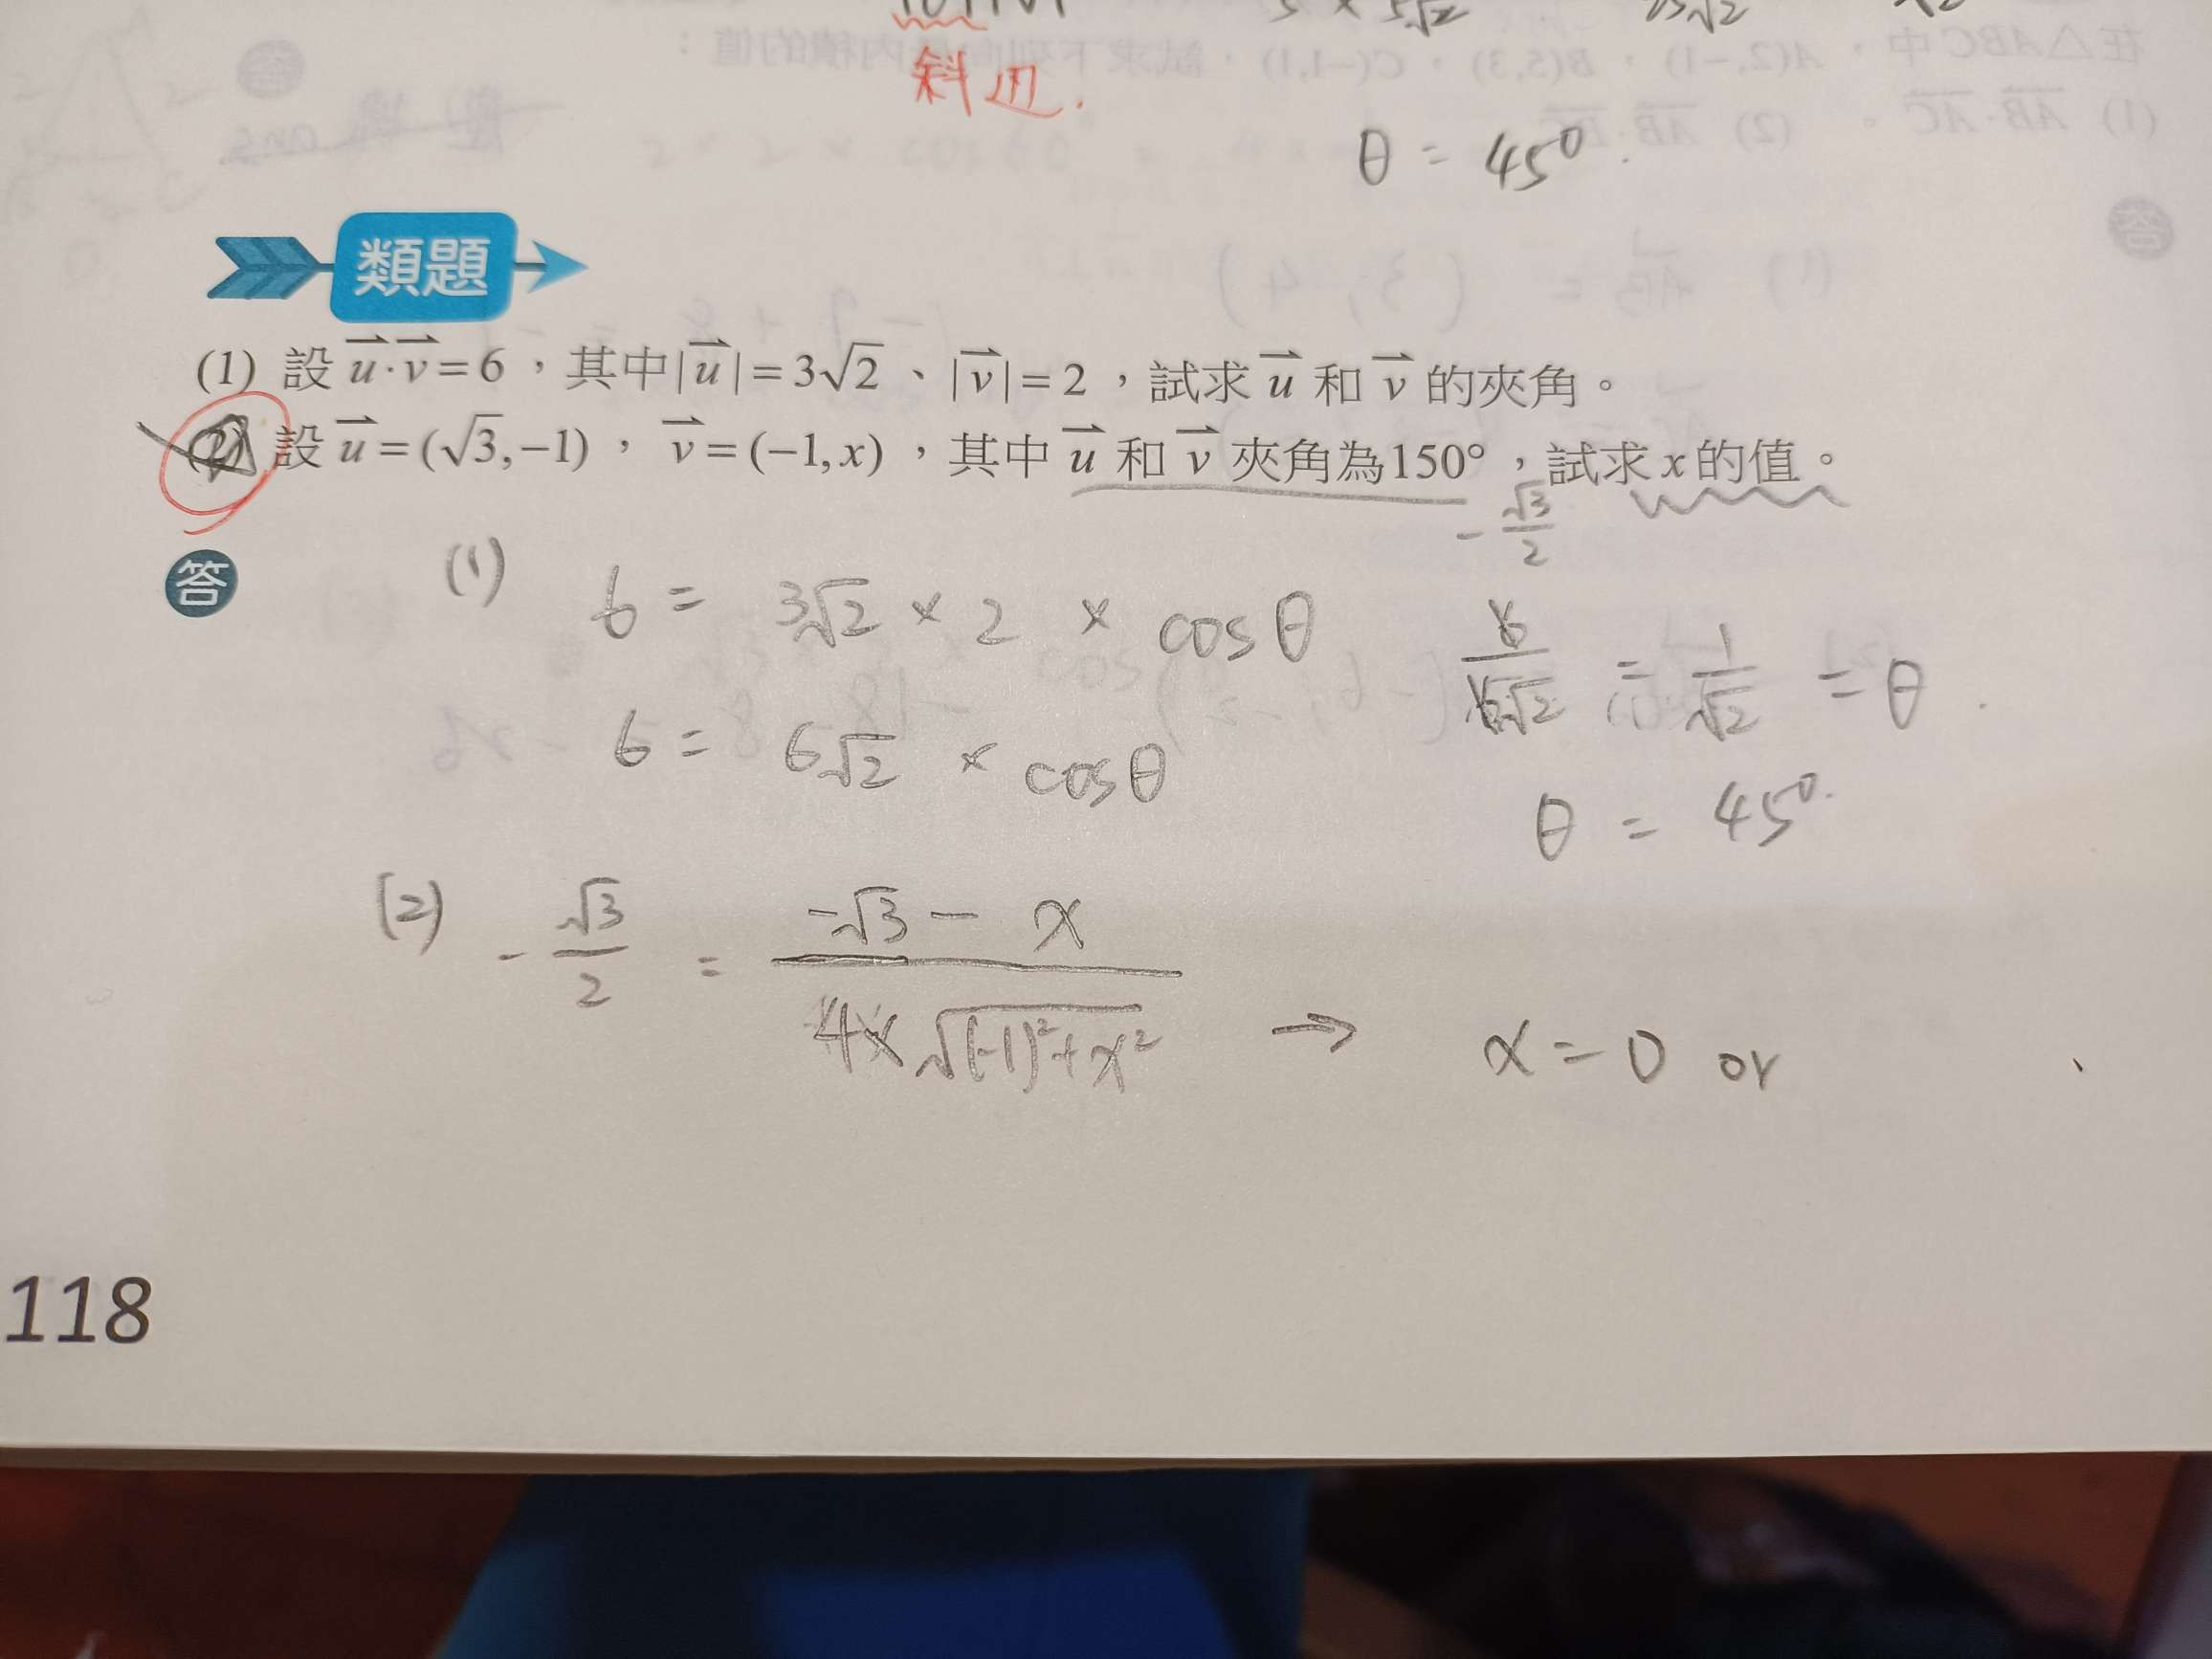 斜边.
θ = 45°.
類題
(1) 設 u⃗·v⃗=6，其中|u⃗|=3√2、|v⃗|=2，試求 u⃗ 和 v⃗ 的夾角。
(2) 設 u⃗=(√3,−1)，v⃗=(−1,x)，其中 u⃗ 和 v⃗ 夾角為150°，試求 x 的值。
-√3/2
答
(1) 6 = 3√2 × 2 × cosθ
6/6√2 = 1/√2 = θ.
6 = 6√2 × cosθ
θ = 45°.
(2) -√3/2 = (-√3 - x)/(4×√((-1)²+x²)) → x = 0 or
118